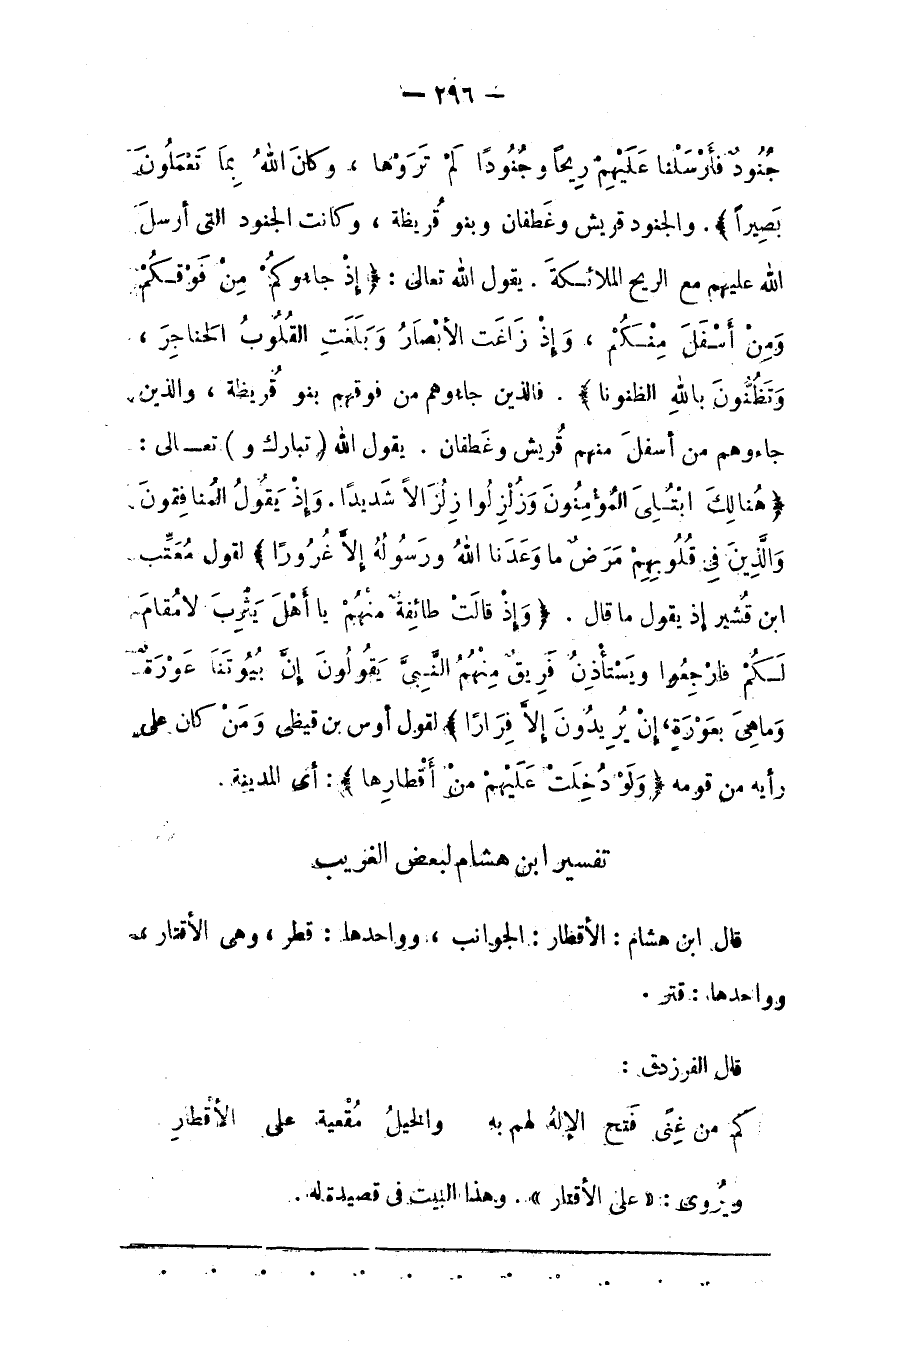 — ٢٩٦ —
جُنُودٌ فأَرْسَلْنا عَلَيْهِمْ رِيحاً وجُنُودًا لَمْ تَرَوْها ، وكانَ اللهُ بِمَا تَعْمَلُونَ
بَصِيراً ﴾ . والجنود قريش وغَطفان وبنو قُريظة ، وكانت الجنود التى أرسلَ
الله عليهم مع الريح الملائكةَ . يقول الله تعالى : ﴿ إذْ جاءوكُمْ مِنْ فَوْقكُمْ
وَمِنْ أَسْفَلَ مِنْكُمْ ، وَإِذْ زَاغَت الأبْصَارُ وَبَلَغَتِ القُلُوبُ الحَناجِرَ ،
وَتَظُنُّونَ باللهِ الظنونا ﴾ . فالذين جاءوهم من فوقهم بنو قُريظة ، والذين
جاءوهم من أسفلَ منهم قُريش وغَطفان . يقول الله ( تبارك و ) تعـالى :
﴿ هُنالِكَ ابْتُلِىَ المُؤمِنُونَ وَزُلْزِلُوا زِلْزَالاً شَديدًا . وَإِذْ يَقُولُ المُنافِقونَ
وَالَّذِينَ فِى قُلُوبِهِمْ مَرَضٌ ما وَعَدَنا اللهُ ورَسُولُهُ إلاَّ غُرُورًا ﴾ لقول مُعَتِّب
ابن قُشير إذ يقول ما قال . ﴿ وَإِذْ قالَتْ طائِفةٌ منْهُمْ يا أَهْلَ يَثْرِبَ لامُقامَ
لَكُمْ فارْجِعُوا ويَسْتَأْذِنُ فَرِيقٌ مِنْهُمُ النَّبِىَّ يَقُولُونَ إنَّ بُيُوتَنَا عَوْرَةٌ
وَماهِىَ بعَوْرَةٍ ، إنْ يُرِيدُونَ إلاَّ فِرَارًا ﴾ لقول أوس بن قيظى وَمَنْ كان على
رأيه من قومه ﴿ وَلَوْ دُخِلَتْ عَلَيْهِمْ منْ أَقْطارِها ﴾ : أى المدينة .
تفسير ابن هشام لبعض الغريب
قال ابن هشام : الأقطار : الجوانب ، وواحدها : قطر ، وهى الأقتار ،
وواحدها : قتر .
قال الفرزدق :
كم من غِنًى فَتح الإلهُ لهم به والخيلُ مُقْعية على الأقْطارِ
ويُروى : « على الأقتار » . وهذا البيت فى قصيدة له .